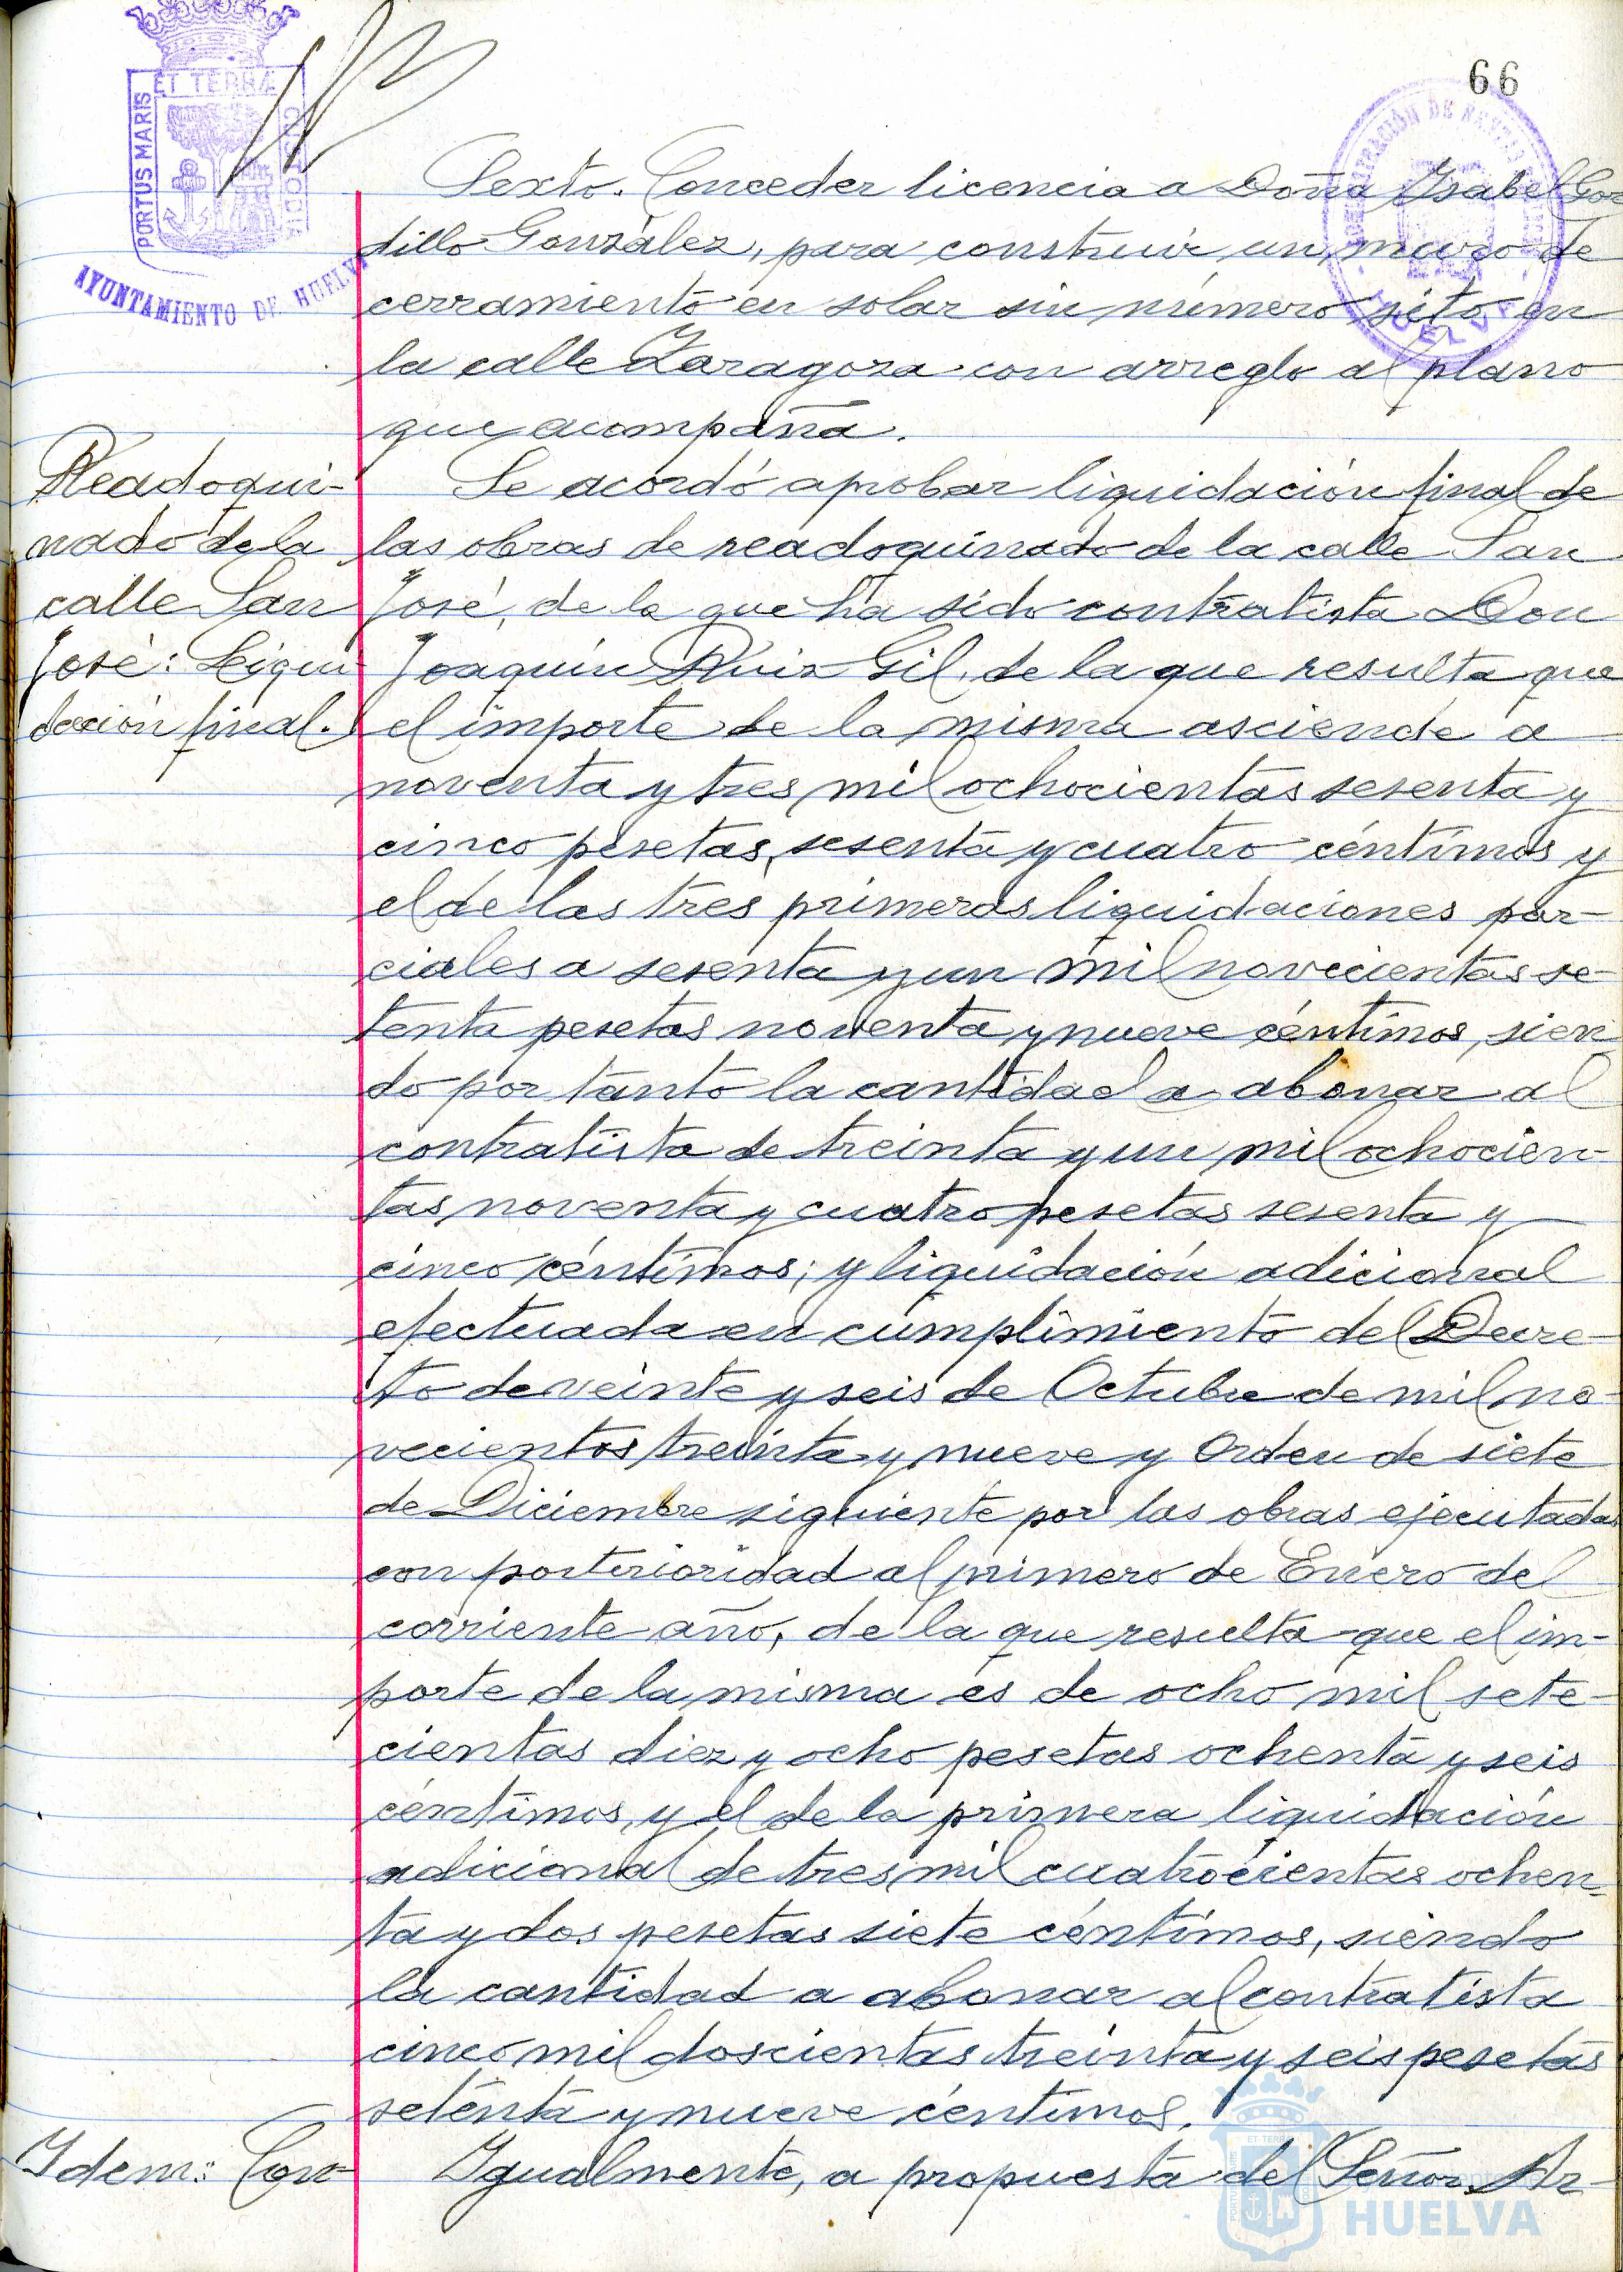 66
ET TERRÆ
PORTUS MARIS
CUSTODIA
AYUNTAMIENTO DE HUELVA
Sexto. Conceder licencia a Doña Ysabel Gor
dillo González, para construir un muro de
cerramiento en solar sin número sito en
la calle Zaragoza con arreglo al plano
que acompaña.
Readoqui-
nado de la
calle San
José: Liqui-
dación final.
Se acordó aprobar liquidación final de
las obras de readoquinado de la calle San
José, de la que ha sido contratista Don
Joaquín Ruiz Gil, de la que resulta que
el importe de la misma asciende a
noventa y tres mil ochocientas sesenta y
cinco pesetas, sesenta y cuatro céntimos y
el de las tres primeras liquidaciones par-
ciales a sesenta y un mil novecientas se-
tenta pesetas noventa y nueve céntimos, sien
do por tanto la cantidad a abonar al
contratista de treinta y un mil ochocien-
tas noventa y cuatro pesetas sesenta y
cinco céntimos; y liquidación adicional
efectuada en cumplimiento del Decre-
to de veinte y seis de Octubre de mil no-
vecientos treinta y nueve y Orden de siete
de Diciembre siguiente por las obras ejecutadas
con posterioridad al primero de Enero del
corriente año, de la que resulta que el im-
porte de la misma es de ocho mil sete-
cientas diez y ocho pesetas ochenta y seis
céntimos, y el de la primera liquidación
adicional de tres mil cuatrocientas ochen-
ta y dos pesetas siete céntimos, siendo
la cantidad a abonar al contratista
cinco mil doscientas treinta y seis pesetas
setenta y nueve céntimos.
Ydem: Con-
Ygualmente, a propuesta del Señor Ar-
HUELVA